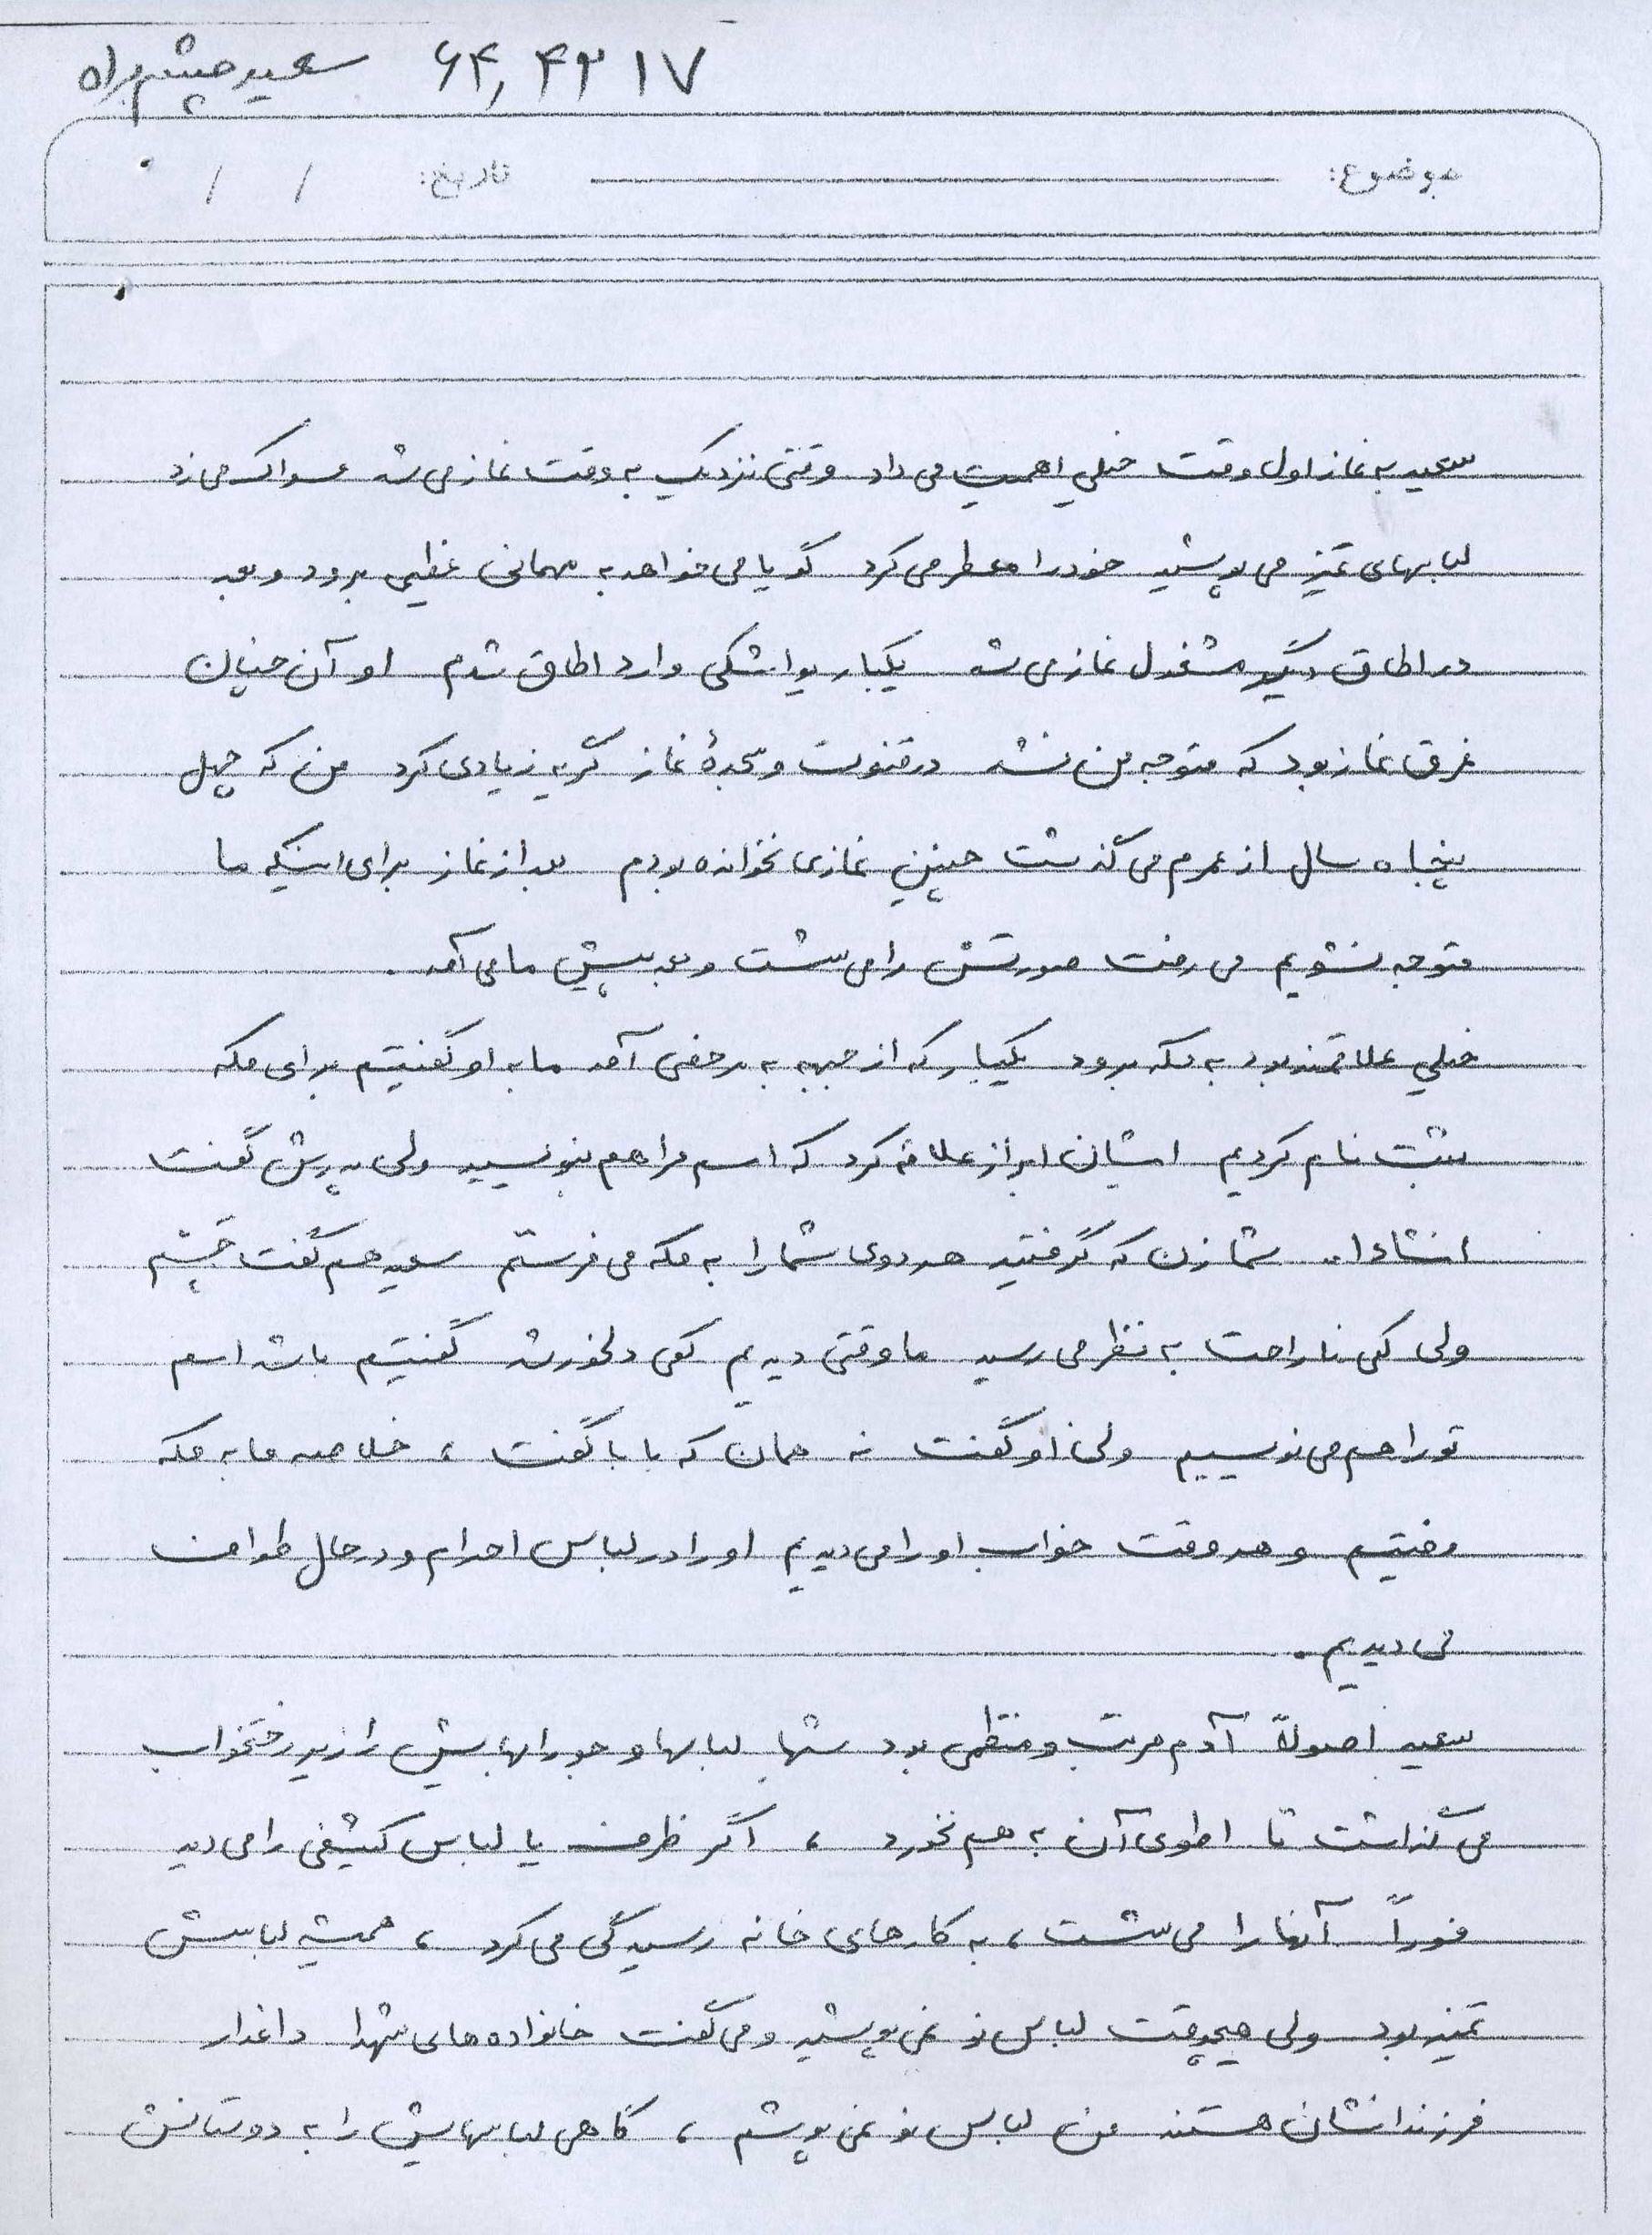 ۶۴,۴۳۱۷ سعید چشم براه
موضوع: تاریخ: / /
سعید به نماز اول وقت خیلی اهمیت می داد وقتی نزدیک به وقت نماز می شد مسواک می زد
لباسهای تمیز می پوشید خود را معطر می کرد گویا می خواهد به مهمانی عظیمی برود و بعد
در اطاق دیگر مشغول نماز می شد یکبار یواشکی وارد اطاق شدم او آن چنان
غرق نماز بود که متوجه من نشد در قنوت و سجدهٔ نماز گریه زیادی کرد من که چهل
پنجاه سال از عمرم می گذشت چنین نمازی نخوانده بودم بعد از نماز برای اینکه ما
متوجه نشویم می رفت صورتش را می شست و بعد پیش ما می آمد.
خیلی علاقمند بود به مکه برود یکبار که از جبهه به مرخصی آمد ما به او گفتیم برای مکه
ثبت نام کردیم ایشان ابراز علاقه کرد که اسم مرا هم بنویسید ولی پدرش گفت
انشاءا.. شما زن که گرفتید هر دوی شما را به مکه می فرستم سعید هم گفت چَشم
ولی کمی ناراحت به نظر می رسید ما وقتی دیدیم کمی دلخور شد گفتیم باشد اسم
تو را هم می نویسیم ولی او گفت نه همان که بابا گفت، خلاصه ما به مکه
رفتیم و هر وقت خواب او را می دیدیم او را در لباس احرام و در حال طواف
می دیدیم.
سعید اصولاً آدم مرتب و منظمی بود شبها لباسها و جورابهایش را زیر رختخواب
می گذاشت تا اطوی آن به هم نخورد، اگر ظرف یا لباس کثیفی را می دید
فوراً آنها را می شست، به کارهای خانه رسیدگی می کرد، همیشه لباسش
تمیز بود ولی هیچوقت لباس نو نمی پوشید و می گفت خانواده های شهدا داغدار
فرزندانشان هستند من لباس نو نمی پوشم، گاهی لباسهایش را به دوستانش